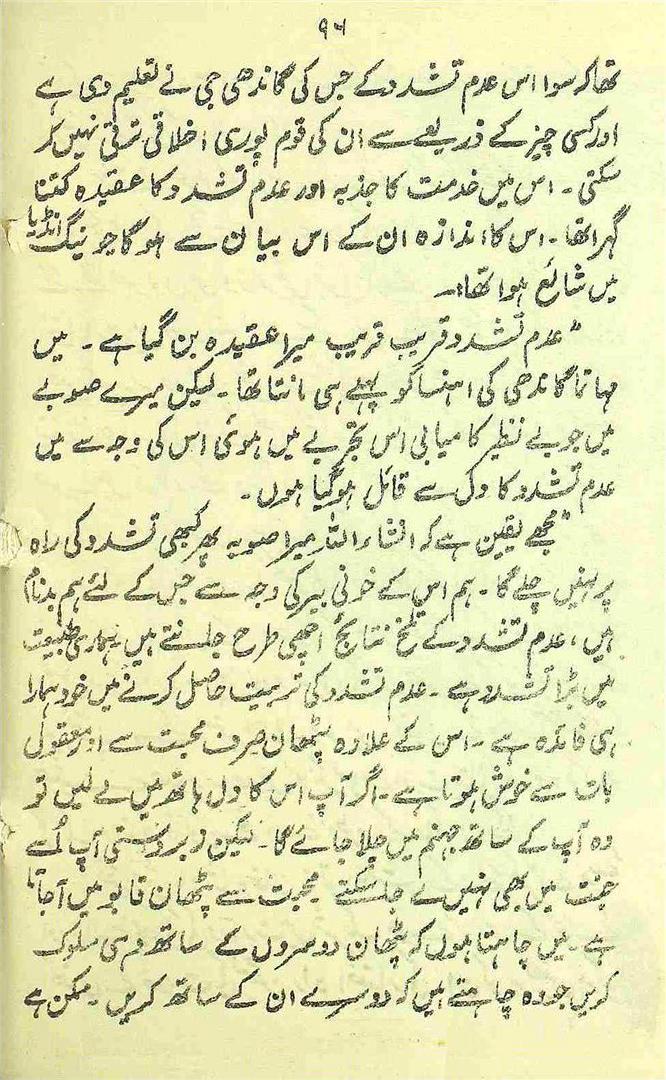 ۹۶
تھا کہ سوا اس عدم تشدد کے جس کی گاندھی جی نے تعلیم دی ہے
اور کسی چیز کے ذریعے سے ان کی قوم پوری اخلاقی ترقی نہیں کر
سکتی۔ اس میں خدمت کا جذبہ اور عدم تشدد کا عقیدہ کتنا
گہرا تھا۔ اس کا اندازہ ان کے اس بیان سے ہوگا جو ینگ انڈیا
میں شائع ہوا تھا:۔
"عدم تشدد قریب قریب میرا عقیدہ بن گیا ہے۔ میں
مہاتما گاندھی کی اہنسا کو پہلے ہی مانتا تھا۔ لیکن میرے صوبے
میں جو بے نظیر کامیابی اس تجربے میں ہوئی اس کی وجہ سے میں
عدم تشدد کا دل سے قائل ہوگیا ہوں۔
"مجھے یقین ہے کہ انشاء اللہ میرا صوبہ پھر کبھی تشدد کی راہ
پر نہیں چلے گا۔ ہم اس کے خونی بیر کی وجہ سے جس کے لئے ہم بدنام
ہیں، عدم تشدد کے تلخ نتائج اچھی طرح جانتے ہیں۔ ہماری طبیعت
میں بڑا تشدد ہے۔ عدم تشدد کی تربیت حاصل کرنے میں خود ہمارا
ہی فائدہ ہے۔ اس کے علاوہ پٹھان صرف محبت سے اور معقول
بات سے خوش ہوتا ہے۔ اگر آپ اس کا دل ہاتھ میں لے لیں تو
وہ آپ کے ساتھ جہنم میں چلا جائے گا۔ لیکن زبردستی آپ اُسے
جنت میں بھی نہیں لے جاسکتے محبت سے پٹھان قابو میں آجاتا
ہے۔ میں چاہتا ہوں کہ پٹھان دوسروں کے ساتھ وہی سلوک
کریں جو وہ چاہتے ہیں کہ دوسرے ان کے ساتھ کریں۔ ممکن ہے